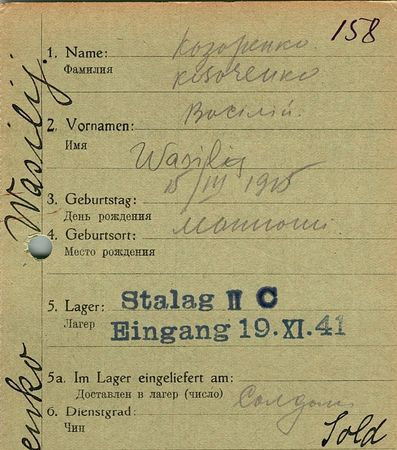 158
1. Name:
Фамилия
Wasilij.
2. Vornamen:
Имя
Василий.
Wasilij
15/III 1915
3. Geburtstag:
День рождения
4. Geburtsort:
Место рождения
5. Lager:
Лагер
Stalag II C
Eingang 19. XI. 41
5a. Im Lager eingeliefert am:
Доставлен в лагер (число)
6. Dienstgrad:
Чин
Солдат
enko
Sold